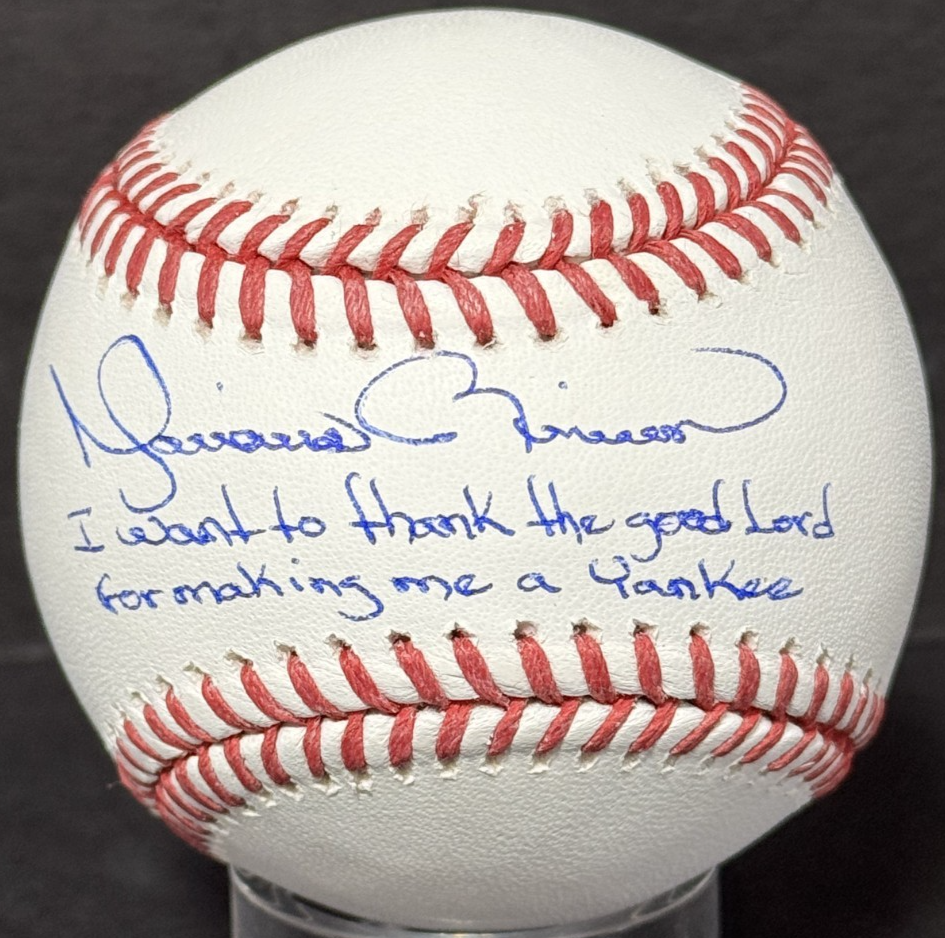 Mariano Rivera
I want to thank the good Lord
for making me a Yankee